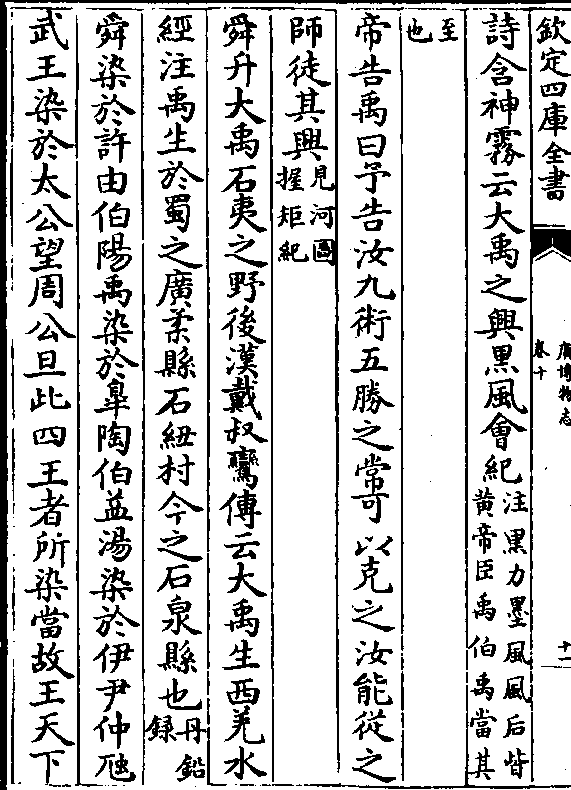 欽定四庫全書
廣博物志
卷十
十一
詩含神霧云大禹之興黒風會紀注黒力墨風風后皆黄帝臣禹伯禹當其
至也
帝告禹曰予告汝九術五勝之常可以克之汝能從之
師徒其興見河圖握矩紀
舜升大禹石夷之野後漢戴叔鸞傳云大禹生西羌水
經注禹生於蜀之廣柔縣石紐村今之石泉縣也丹鉛録
舜染於許由伯陽禹染於臯陶伯益湯染於伊尹仲虺
武王染於太公望周公旦此四王者所染當故王天下